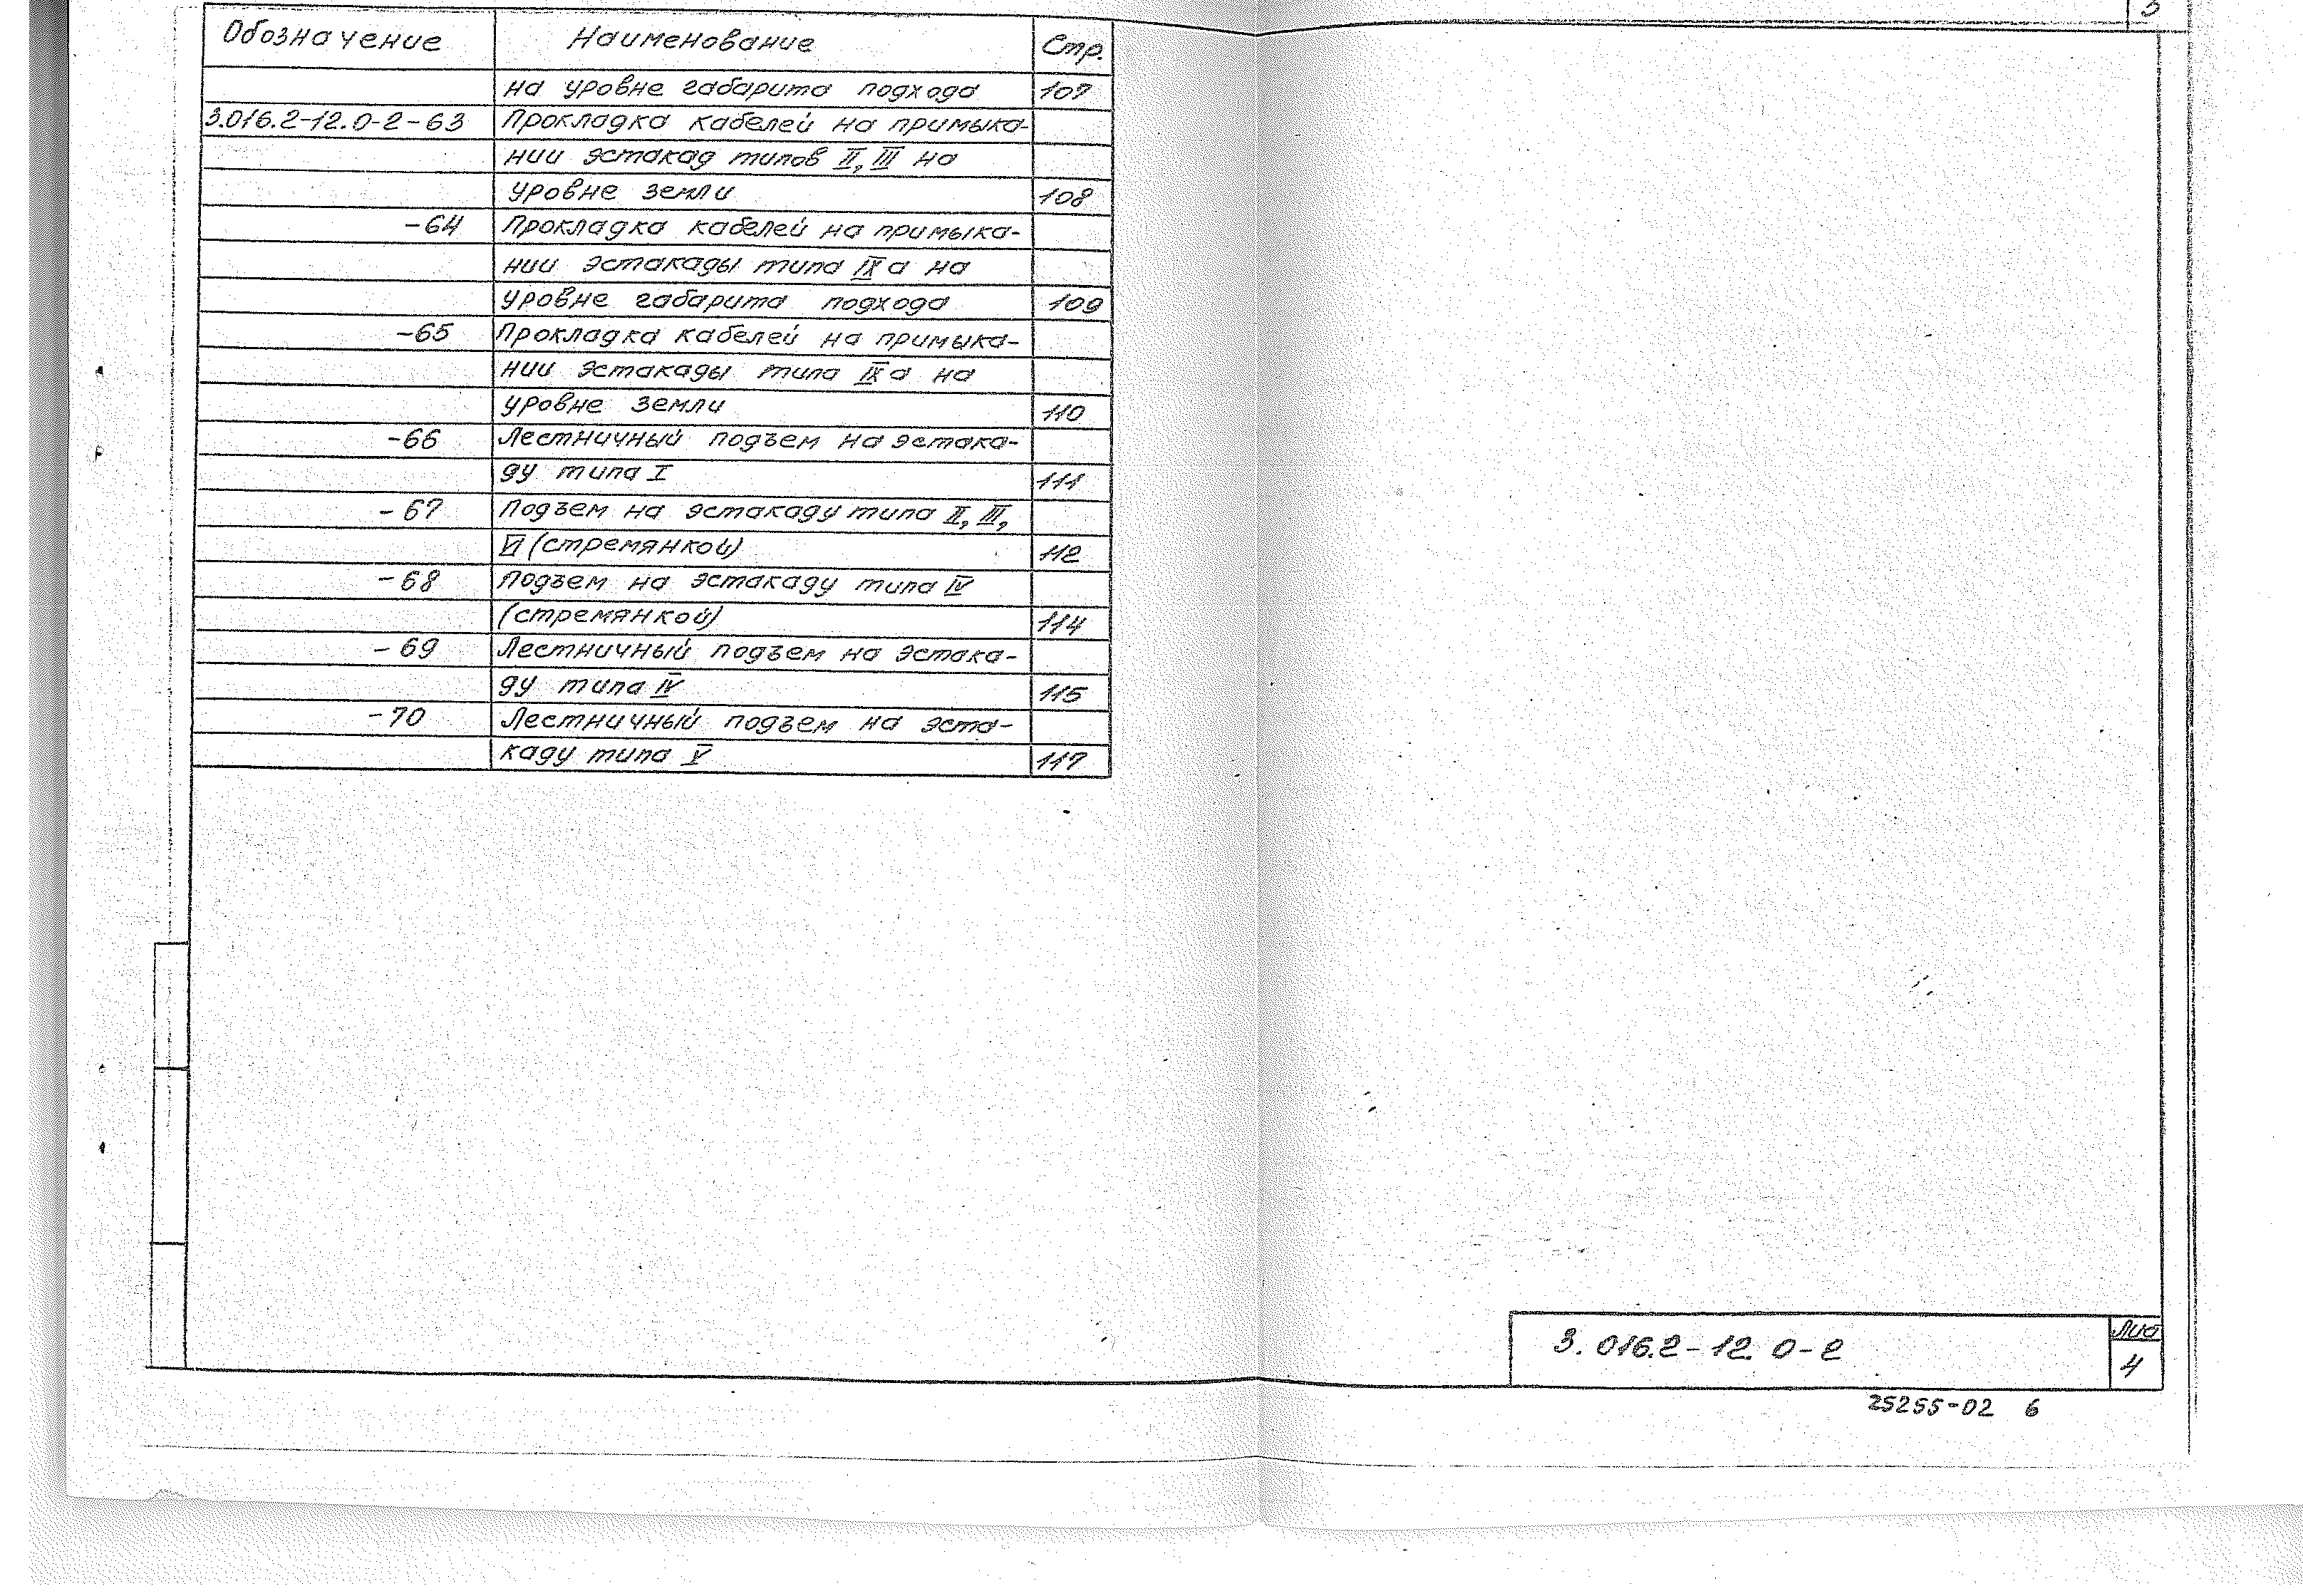 5
Обозначение Наименование Стр.
на уровне габарита подхода 107
3.016.2-12.0-2-63 Прокладка кабелей на примыка-
нии эстакад типов II, III на
уровне земли 108
-64 Прокладка кабелей на примыка-
нии эстакады типа IXа на
уровне габарита подхода 109
-65 Прокладка кабелей на примыка-
нии эстакады типа IXа на
уровне земли 110
-66 Лестничный подъем на эстака-
ду типа I 111
-67 Подъем на эстакаду типа II, III,
VI (стремянкой) 112
-68 Подъем на эстакаду типа IV
(стремянкой) 114
-69 Лестничный подъем на эстака-
ду типа IV 115
-70 Лестничный подъем на эста-
каду типа V 117
3.016.2-12.0-2
Лис
4
25255-02 6